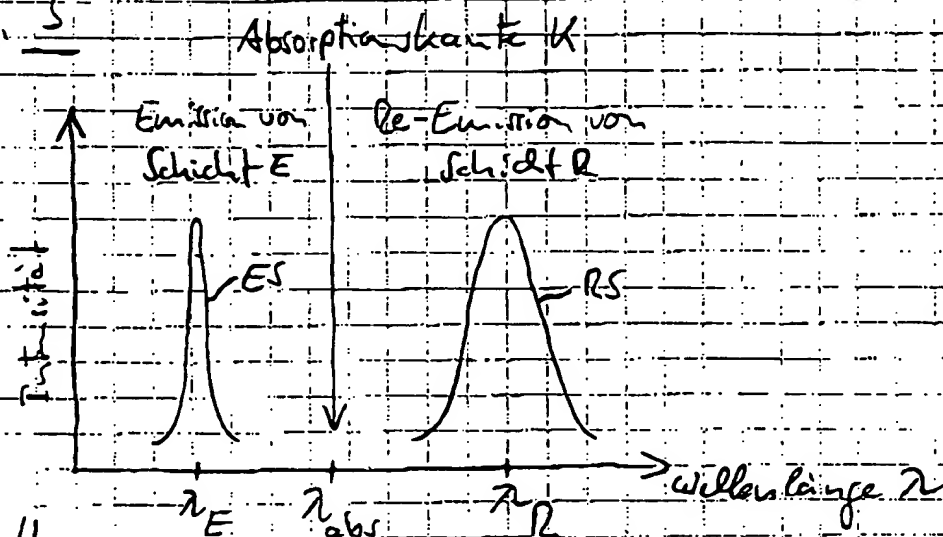 3
Absorptionskante K
Emission von
Schicht E
Re-Emission von
Schicht R
Intensität
ES
RS
λE
λabs
λR
Wellenlänge λ